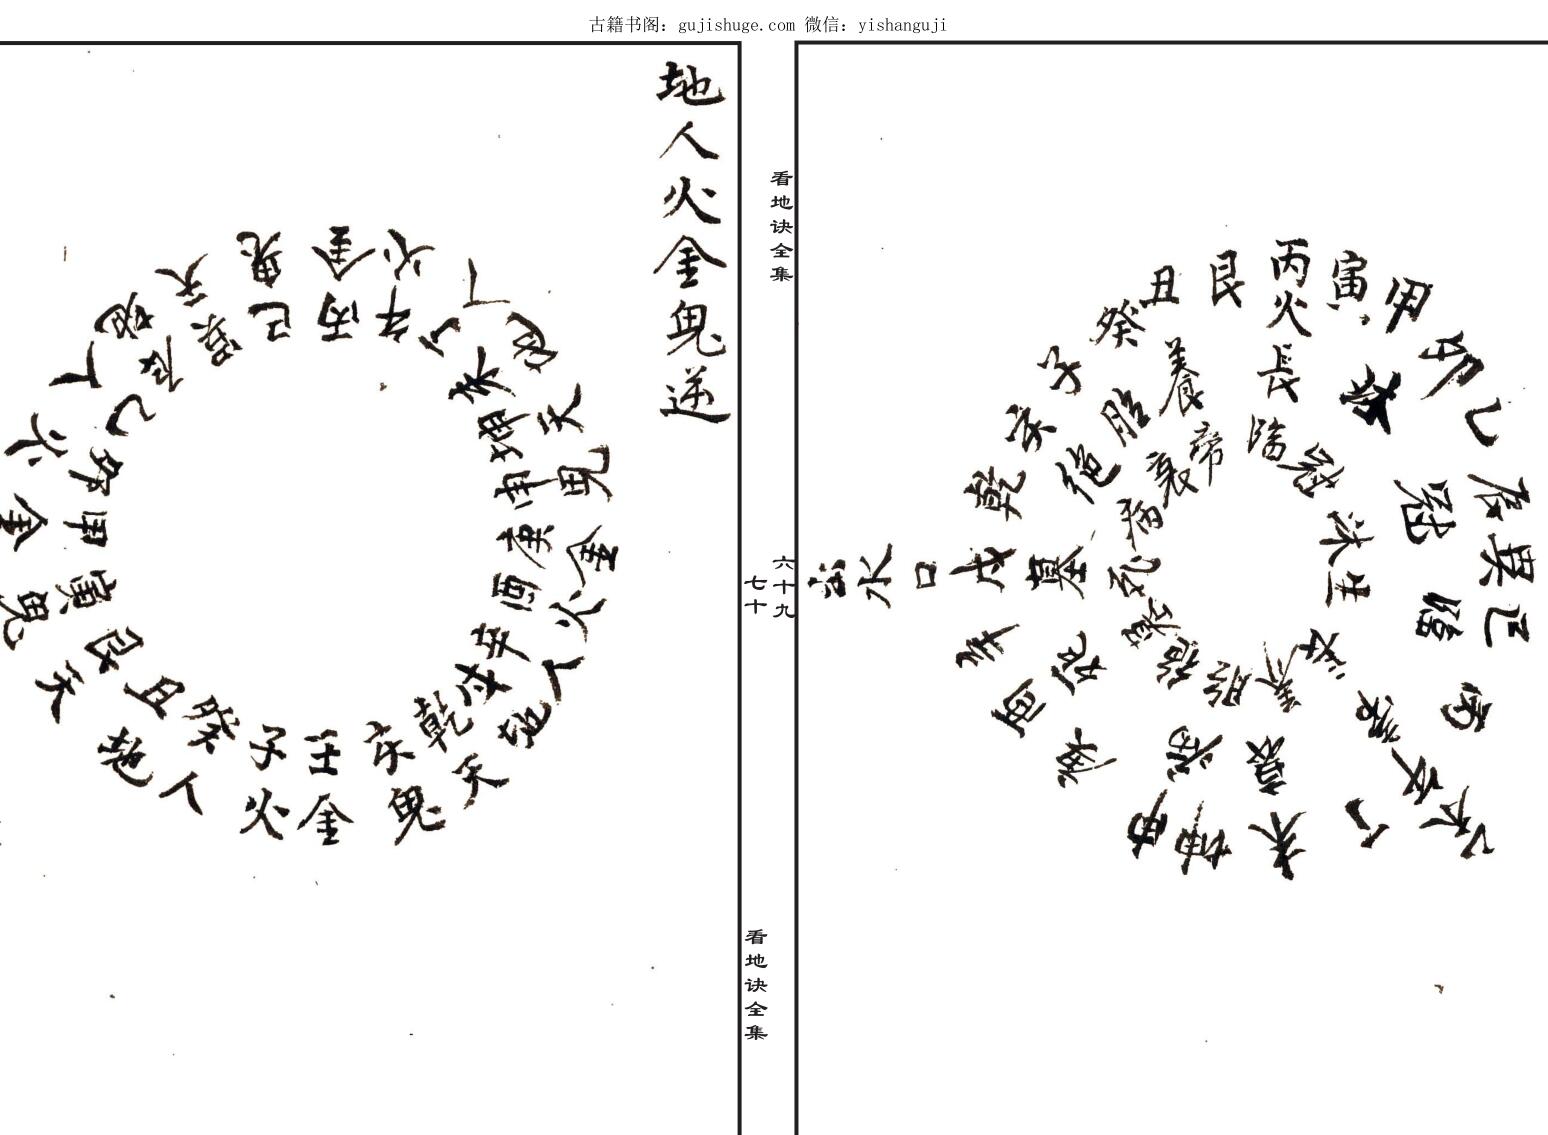 古籍书阁：gujishuge.com 微信：yishanguji
看地诀全集
六十九
出水口
丙火
寅
甲
卯
乙
辰
巽
巳
丙
午
丁
未
坤
申
庚
酉
辛
戌
乾
亥
子
癸
丑
艮
長
冠
臨
衰
病
死
墓
絕
胎
養
帝
臨
冠
沐
生
養
胎
墓
死
病
衰
七十
看地诀全集
地人火金鬼逆
丙
午
丁
未
坤
申
庚
酉
辛
戌
乾
亥
壬
子
癸
丑
艮
寅
甲
卯
乙
辰
巽
巳
金
火
丁
地
天
鬼
金
火
人
地
天
鬼
金
火
人
地
天
鬼
金
火
丁
地
天
鬼